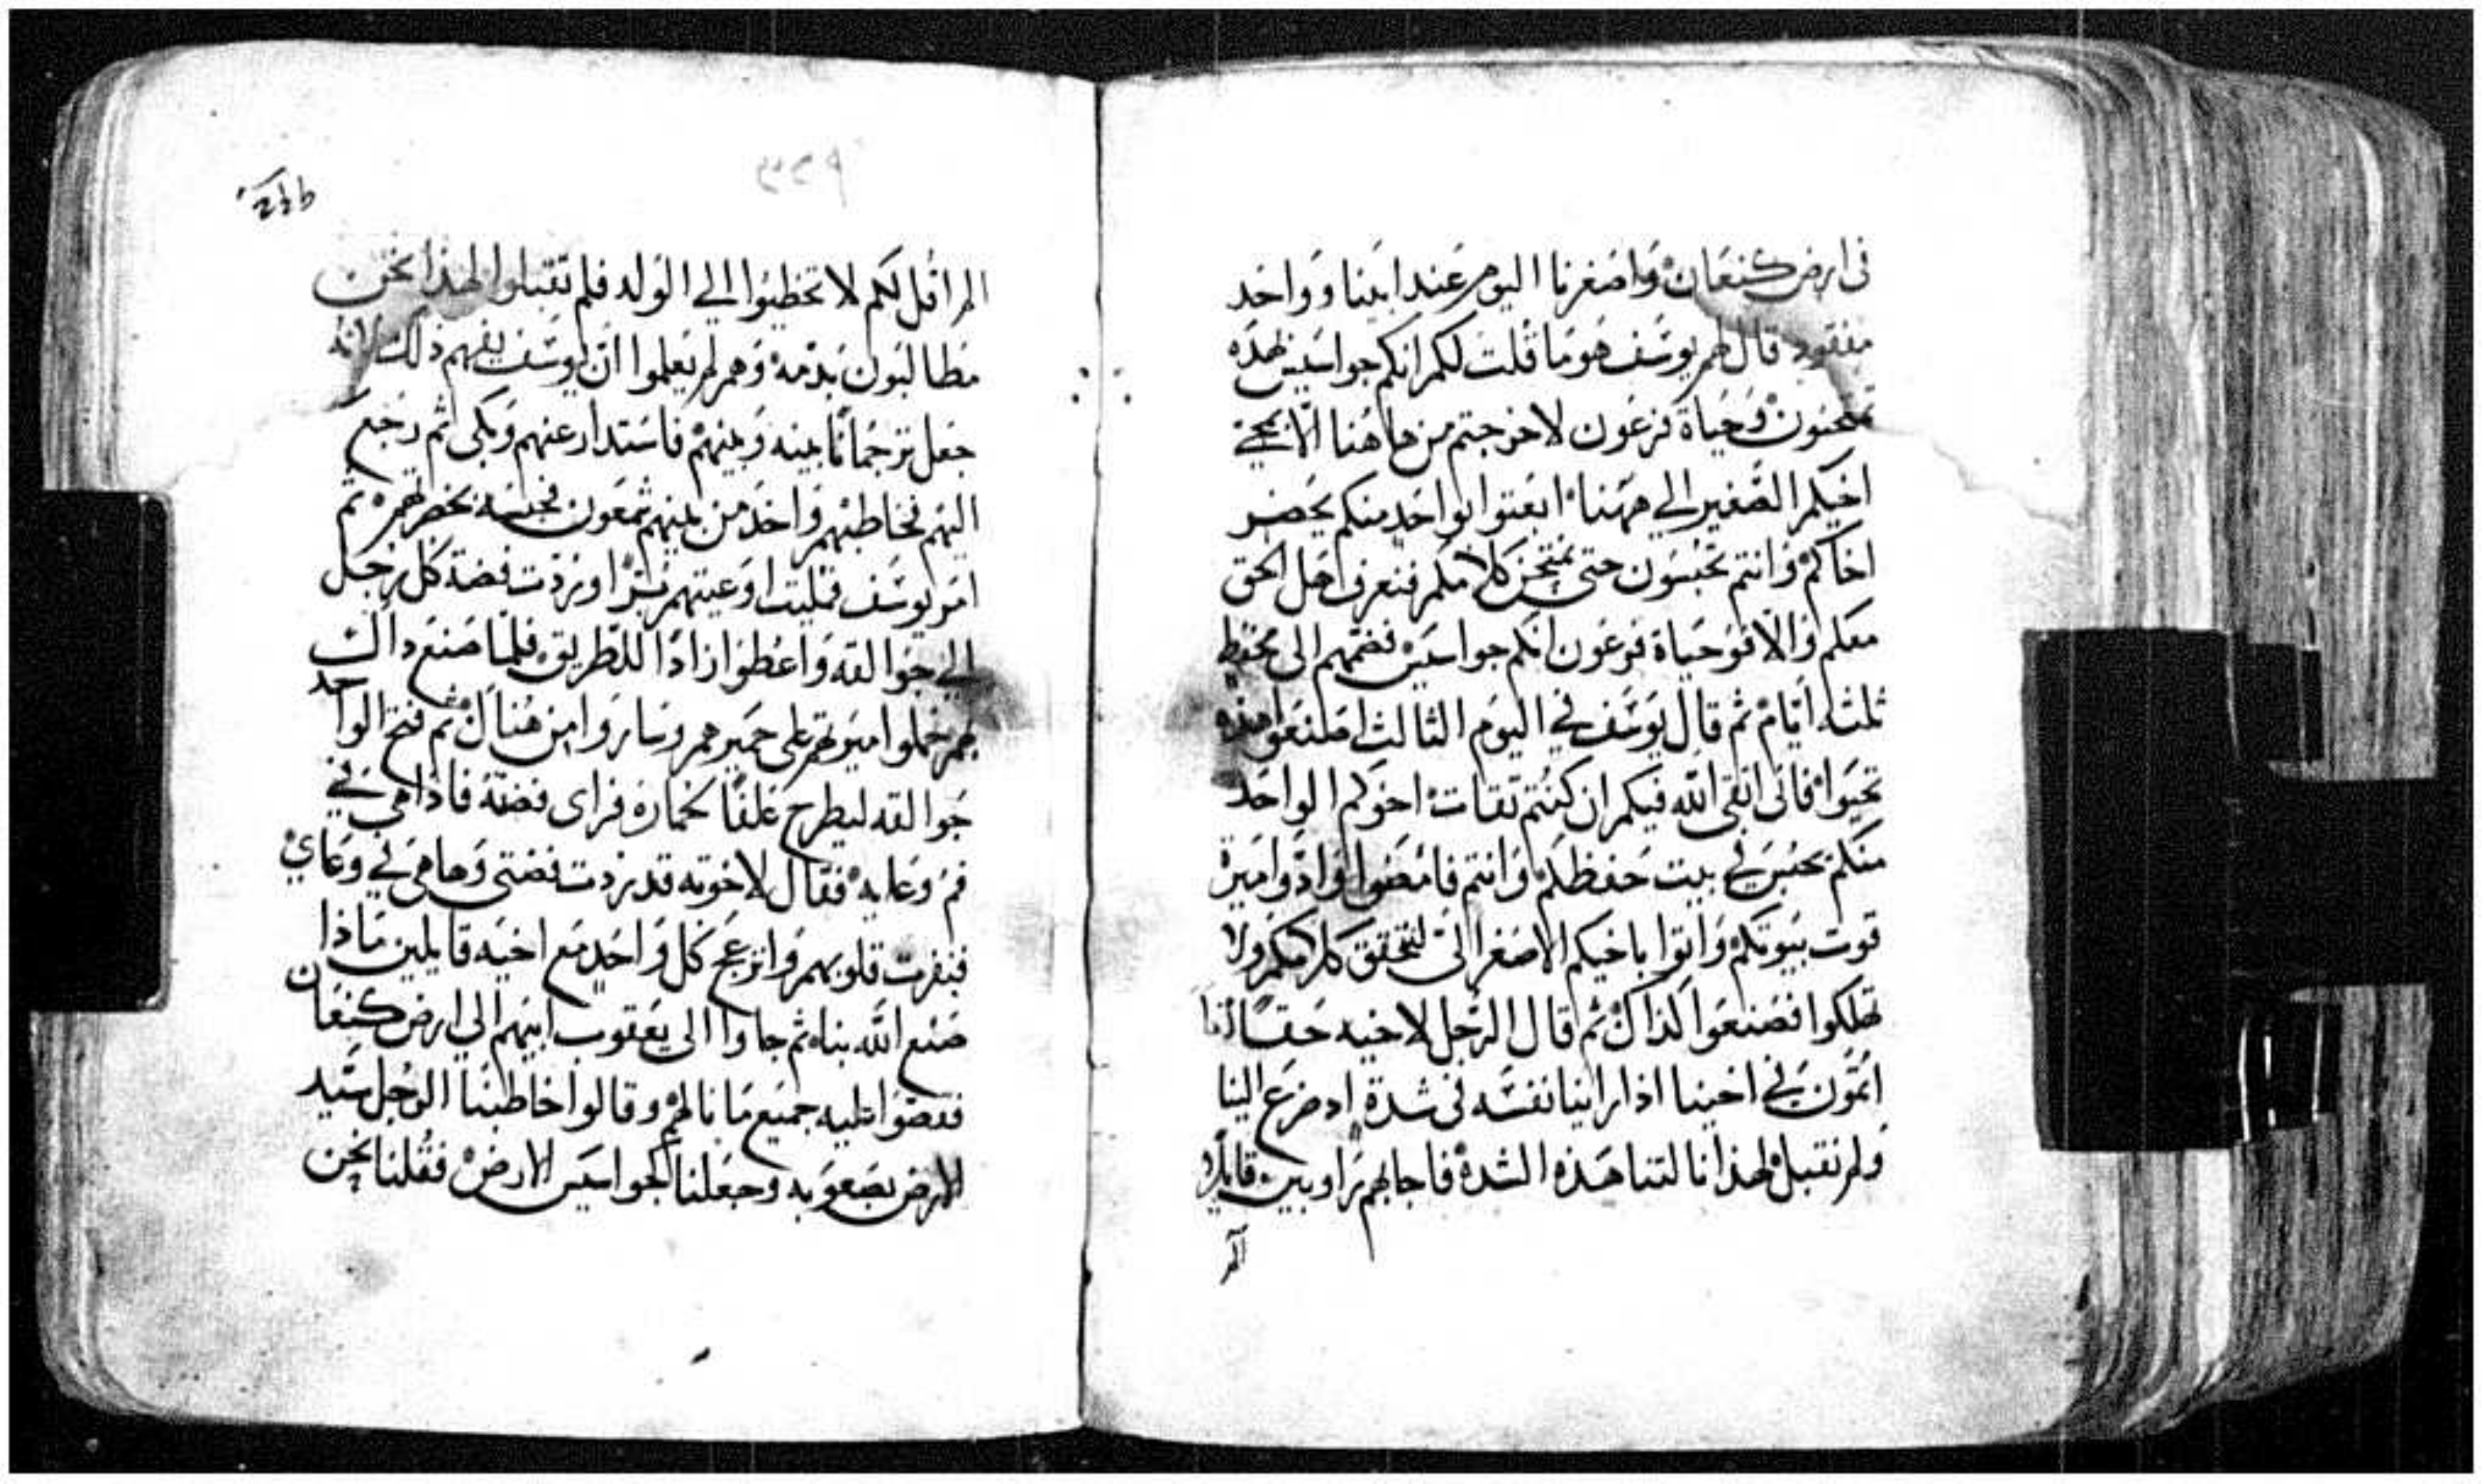 في ارض كنعان واصغرنا اليوم عند ابينا وواحد
مفقود قال لهم يوسف هو ما قلت لكم انكم جواسيس بهذه
تمتحنون وحياة فرعون لاخرجتم من هاهنا الا بمجي
اخيكم الصغير الي ههنا ابعتوا الواحد منكم يحضر
اخاكم وانتم تحبسون حتي نمتحن كلامكم فنعرف هل الحق
معكم والا فوحياة فرعون انكم جواسيس فضمهم الى محفظ
ثلثه ايام ثم قال يوسف في اليوم الثالث اصنعوا هذه
تحيوا فاني اتقي الله فيكم ان كنتم تقات اخوكم الواحد
منكم يحبس في بيت حفظكم وانتم فامضوا وادوا ميرة
قوت بيوتكم واتوا باخيكم الاصغر الي لنحقق كلامكم ولا
تهلكوا فصنعوا كذاك ثم قال الرجل لاخيه حقا اننا
اثمون في اخينا اذ راينا نفسه في شدة اد ضرع الينا
ولم نقبل لهذا نالتنا هذه الشدة فاجابهم راوبين قايلا
الم
الم اقل لكم لا تخطيوا الي الولد فلم تقبلوا لهذا نحن
مطالبون بدمه وهم لم يعلموا ان يوسف يفهم ذلك لانه
جعل ترجمانا بينه وبينهم فاستدار عنهم وبكى ثم رجع
اليهم فخاطبهم واخد من بينهم شمعون فحبسه بحضرتهم ثم
امر يوسف فمليت اوعيتهم برا وردت فضة كل رجل
الي جوالقه واعطوا زادا للطريق فلما صنع داك
بهم حملوا ميرتهم على حميرهم وساروا من هناك ثم فتح الواحد
جوالقه ليطرح علفا لحماره فراى فضته فاذا هي في
فم وعايه فقال لاخوته قد ردت فضتي وها هي في وعاي
فنفرت قلوبهم وانزعج كل واحد مع اخيه قايلين ماذا
صنع الله بنا ثم جاوا الى يعقوب ابيهم الي ارض كنعان
فقصوا عليه جميع ما نالهم وقالوا خاطبنا الرجل سيد
الارض بصعوبه وجعلنا كجواسيس الارض فقلنا نحن